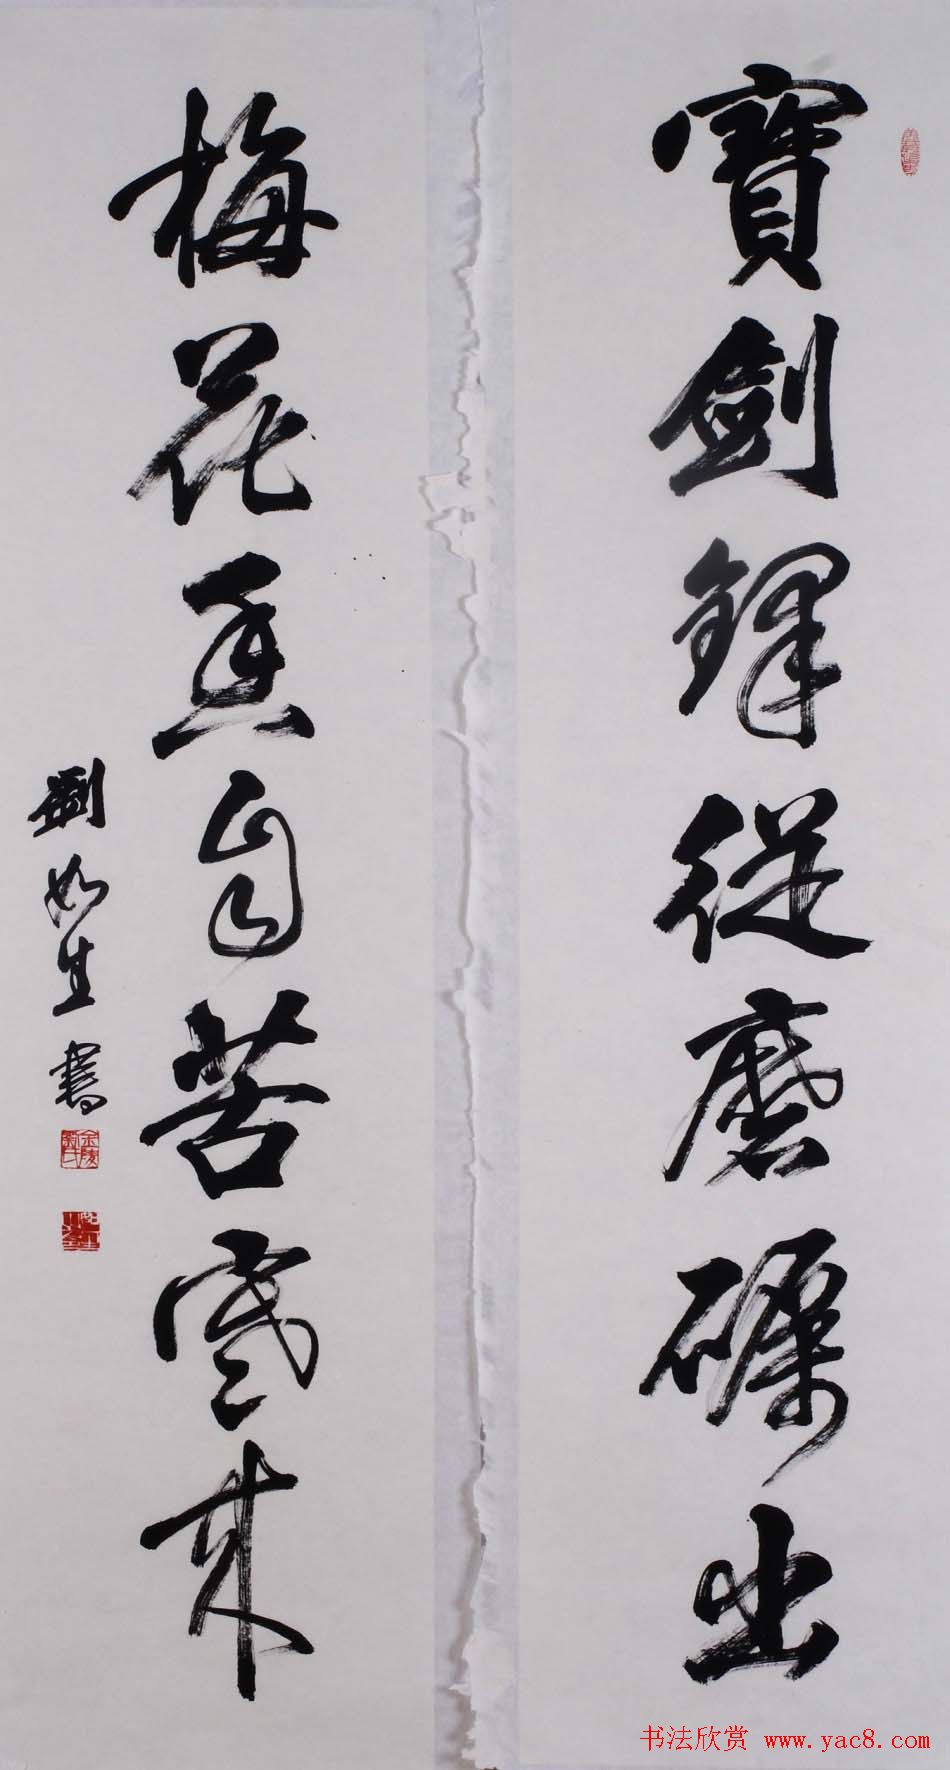 寶劍鋒從磨礪出
梅花香自苦寒來
劉如生書
金陵劉氏
书法欣赏 www.yac8.com